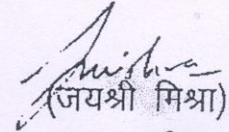 (जयश्री मिश्रा)